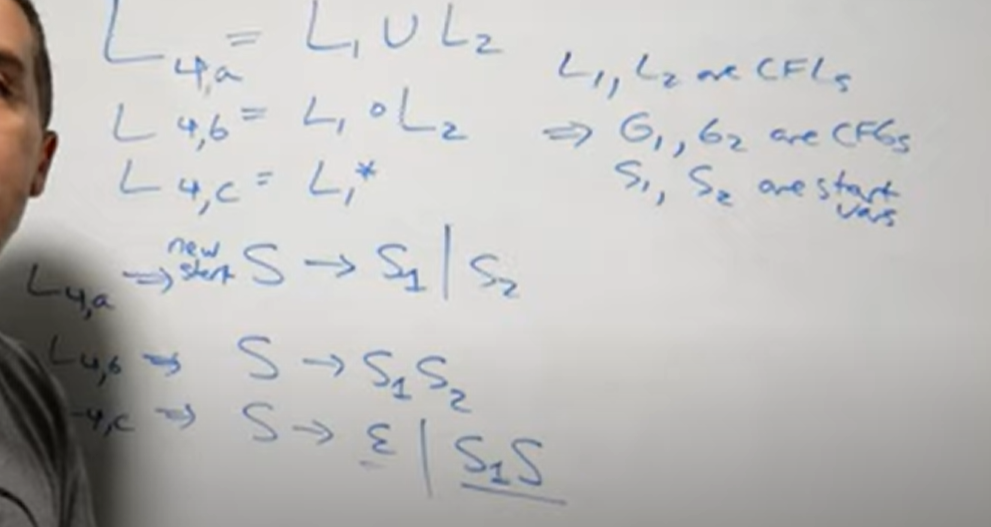 L4,a = L1 ∪ L2
L4,b = L1 ∘ L2
L4,c = L1*
L1, L2 are CFLs
⇒ G1, G2 are CFGs
S1, S2 are start
vars
L4,a ⇒ new start S → S1 | S2
L4,b ⇒ S → S1 S2
4,c ⇒ S → ε | S1 S